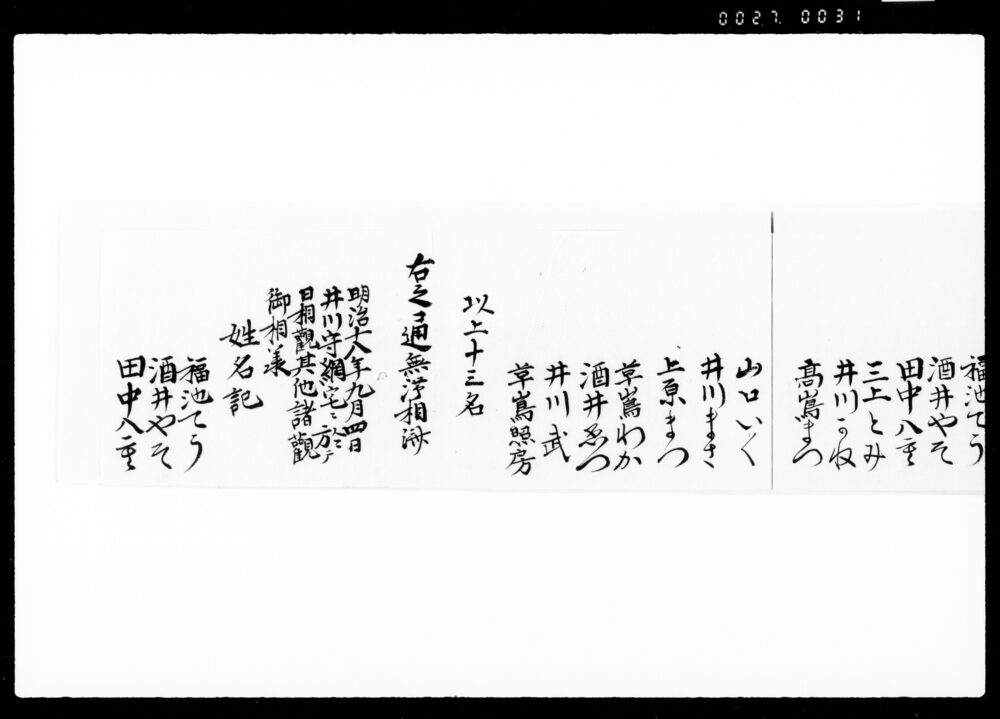 0027 0031
福池てう
酒井やそ
田中八重
三上とみ
井川
高嶌まつ
山口いく
井川まさ
上原まつ
草嶌わか
酒井恵つ
井川武
草嶌照房
以上十三名
右之通無滞相済
明治十八年九月四日
井川守網宅ニ於
日相觀其他諸觀
御相済
姓名記
福池てう
酒井やそ
田中八重